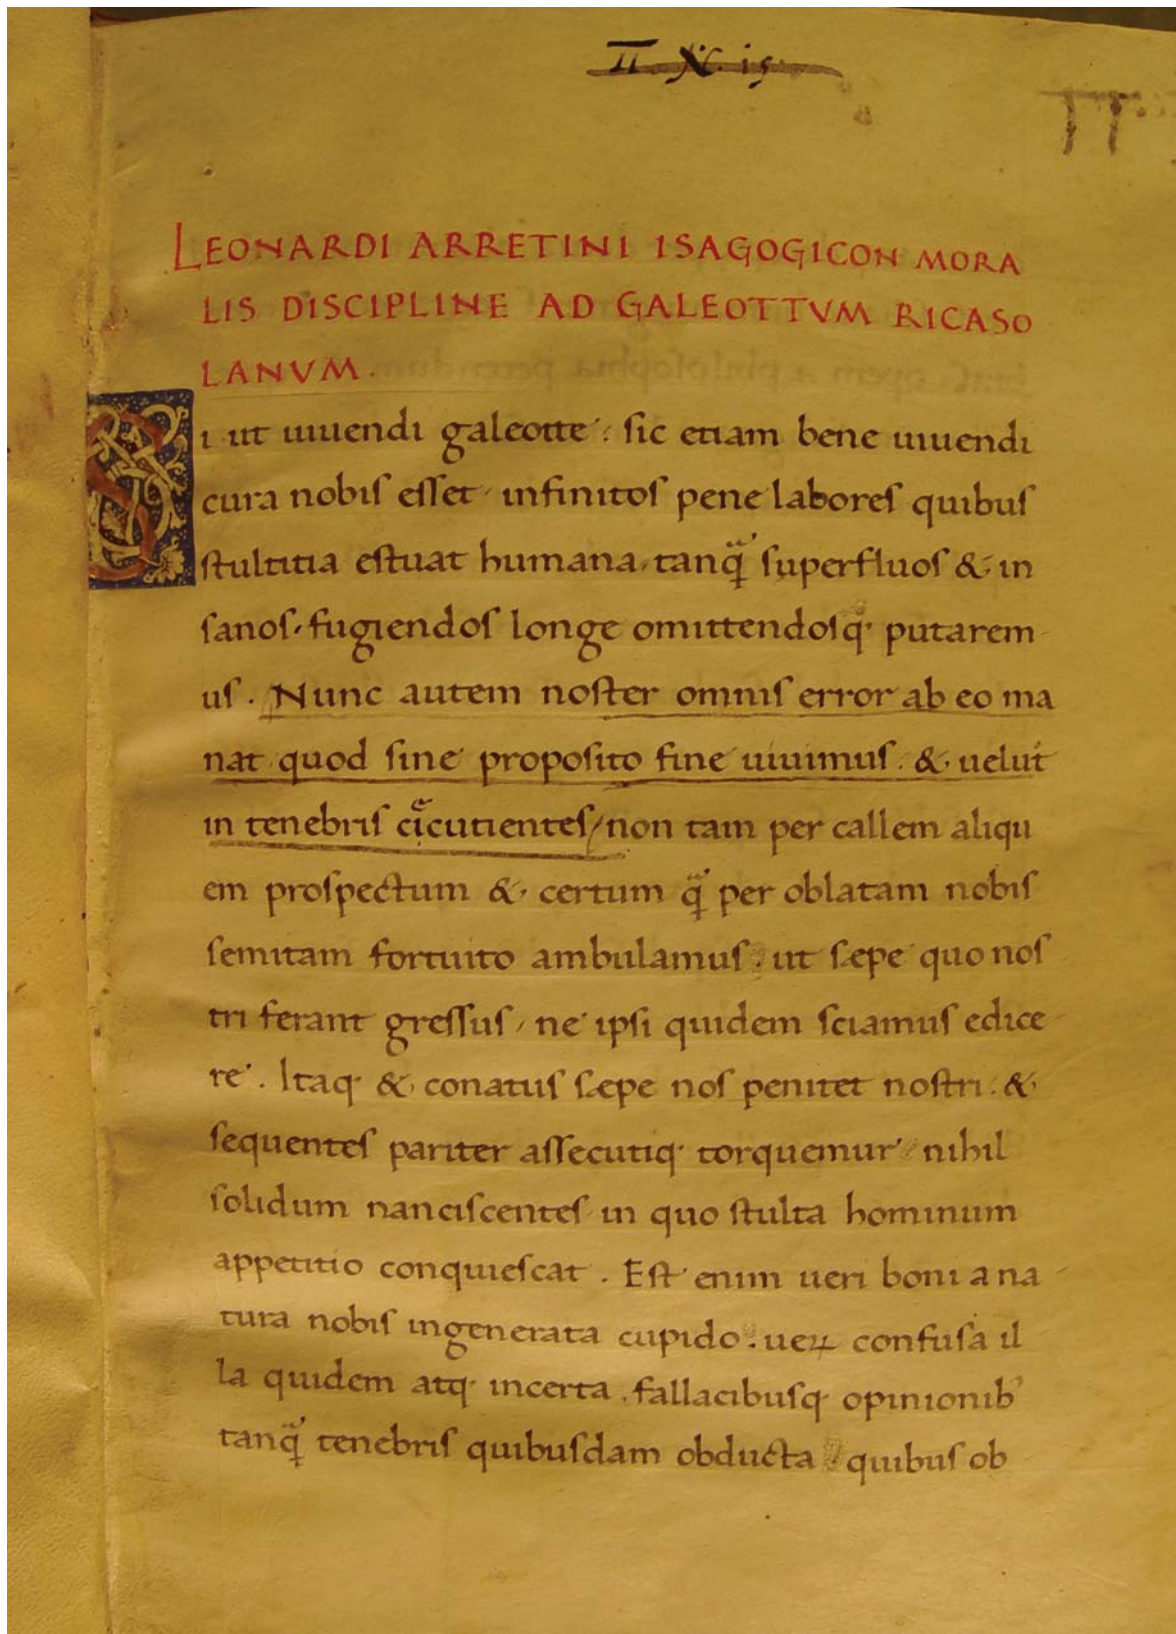 II. X. is
II
LEONARDI ARRETINI ISAGOGICON MORA
LIS DISCIPLINE AD GALEOTTVM RICASO
LANVM.
Si ut uiuendi galeotte: sic etiam bene uiuendi
cura nobis esset infinitos pene labores quibus
stultitia estuat humana, tanq̃ superfluos & in
sanos, fugiendos longe omittendosq; putarem
us. Nunc autem noster omnis error ab eo ma
nat quod sine proposito fine uiuimus. & uelut
in tenebris cicutientes/non tam per callem aliqu
em prospectum & certum q̃ per oblatam nobis
semitam fortuito ambulamus. ut sæpe quo nos
tri ferant gressus, ne ipsi quidem sciamus edice
re. Itaq; & conatus sæpe nos penitet nostri. &
sequentes pariter assecutiq; torquemur nihil
solidum nanciscentes in quo stulta hominum
appetitio conquiescat. Est enim ueri boni a na
tura nobis ingenerata cupido. ueꝝ confusa il
la quidem atq; incerta. fallacibusq; opinionib'
tanq̃ tenebris quibusdam obducta quibus ob